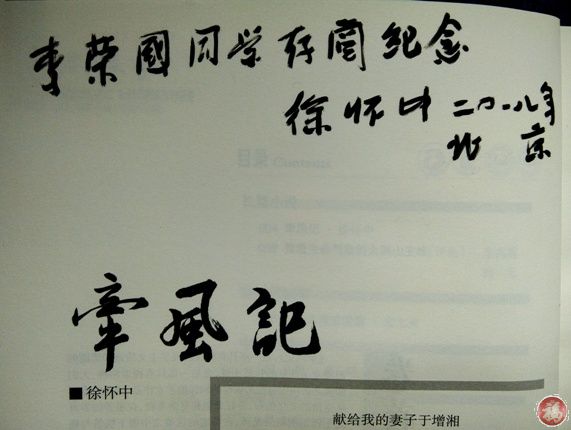 李荣國同学存阅纪念
徐怀中 二〇一八年
北京
目录 Contents
牽風記
■ 徐怀中
献给我的妻子于增湘
福